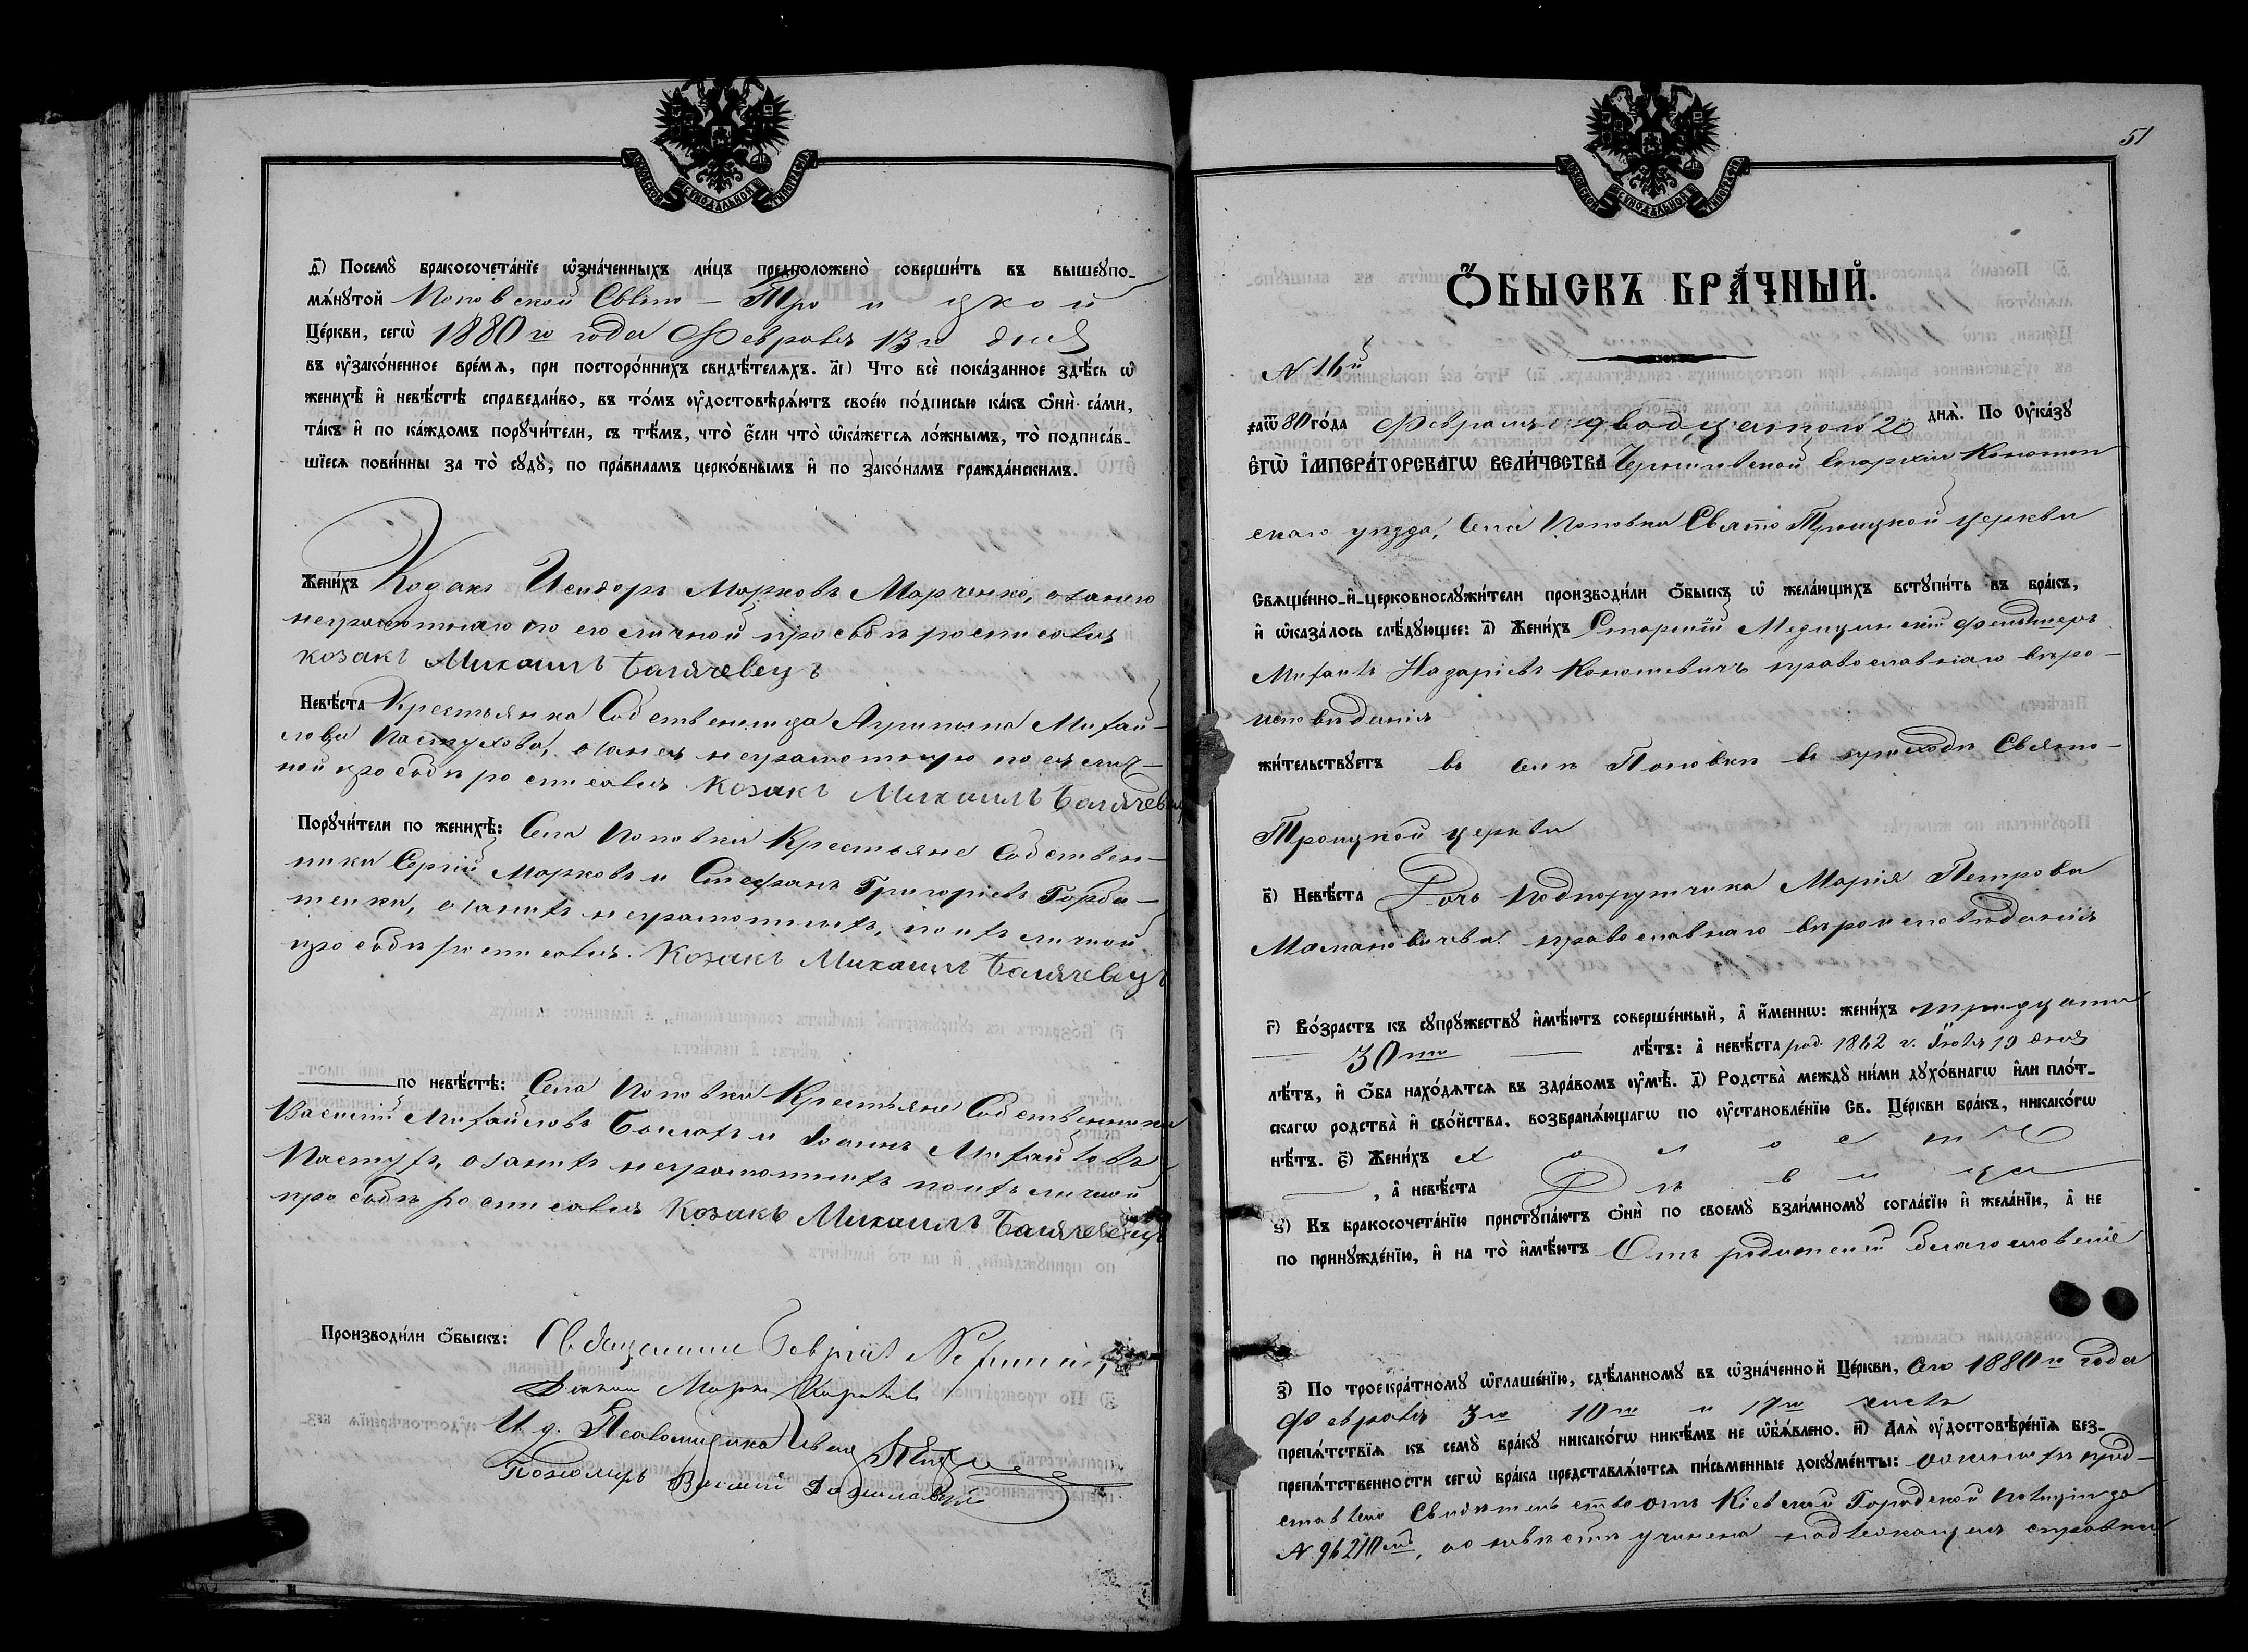 МОСКОВСКОЙ СѴНОДАЛЬНОЙ ТИПОГРАФІИ
і҃) Посемꙋ̀ бракосочета́нїе ѡ҆зна́ченныхъ ли́цъ предположенѡ̀ соверши́ть въ вышеꙋпо-
мѧ́нꙋтой Поповской Свято-Троицкой
Це́ркви, сегѡ̀ 1880го года Февраля 13го дня
въ ᲂу҆зако́ненное вре́мѧ, при посторо́ннихъ свидѣ́телѧхъ. а҃і) Что̀ всѐ пока́занное здѣ́сь ѡ҆
женихѣ̀ и҆ невѣ́стѣ справедли́во, въ то́мъ ᲂу҆достовѣрѧ́ютъ своє́ю по́дписью ка́къ ѻ҆нѝ са́ми,
та́къ и҆ по ка́ждомъ порꙋчи́тели, съ тѣ́мъ, что̀ є҆́сли что̀ ѡ҆ка́жется ло́жнымъ, то̀ подписа́в-
шїеся пови́нны за то̀ сꙋдꙋ̀, по пра́виламъ церко́внымъ и҆ по зако́намъ гражда́нскимъ.
Жени́хъ Козакъ Исидоръ Марковъ Марченко, а за него
неграмотнаго по его личной прозьбѣ росписался
козакъ Михаилъ Балячевецъ
Невѣ́ста Крестьянка Собственница Агрипина Михай-
лова Пастухова, а за нея неграмотную по ея лич-
ной прозьбѣ росписался Козакъ Михаилъ Балячевецъ
Порꙋчи́тели по женихѣ̀: Села Поповки Крестьяне Собствен-
ники Сергій Марковъ и Стефанъ Григорьевъ Горба-
тенки, а за нихъ неграмотныхъ, по ихъ личной
прозьбѣ росписался Козакъ Михаилъ Балячевецъ
по невѣ́стѣ: Села Поповки Крестьяне Собственники
Василій Михайловъ и Іоаннъ Михайловъ
Пастухъ, а за нихъ неграмотныхъ по ихъ личной
прозьбѣ росписался Козакъ Михаилъ Балячевецъ
Производи́ли ѻ҆́быскъ: Священникъ
Діаконъ Маркъ
И. д. Псаломщика
Пономарь Василій
51
МОСКОВСКОЙ СѴНОДАЛЬНОЙ ТИПОГРАФІИ
Ѻ҆́БЫСКЪ БРА́ЧНЫЙ.
N 16й
҂аѿ 80 го́да Февраля двадцатаго 20 днѧ̀. По Оу҆ка́зꙋ
Є҆ГѠ̀ І҆МПЕРА́ТОРСКАГѠ ВЕЛИ́ЧЕСТВА Черниговской Епархіи Конотоп
скаго уѣзда, Села Поповки Свято Троицкой церкви
Свѧще́нно-и҆-церковнослꙋжи́тели производи́ли ѻ҆́быскъ ѡ҆ жела́ющихъ встꙋпи́ть въ бра́къ,
и҆ ѡ҆каза́лось слѣ́дꙋющее: а҃) Жени́хъ Старшій Медицинскій фельдшеръ
Назаріевъ Конюшевичъ православнаго вѣро-
исповѣданія
жи́тельствꙋетъ въ селѣ Поповкѣ въ приходѣ Свято-
Троицкой церкви
в҃) Невѣ́ста Дочь подпоручика Марія Петрова
православнаго вѣроисповѣданія
г҃) Во́зрастъ къ сꙋпрꙋ́жествꙋ и҆мѣ́ютъ соверше́нный, а҆ и҆́меннѡ: жени́хъ тридцати
30ти лѣ́тъ: а҆ невѣ́ста род. 1862 г. Іюля 19 дня
лѣ́тъ, и҆ ѻ҆́ба нахо́дѧтсѧ въ здра́вомъ ᲂу҆мѣ̀. д҃) Родства̀ междꙋ ни́ми дꙋхо́внагѡ и҆ли пло́т-
скагѡ родства̀ и҆ сво́йства, возбранѧ́ющагѡ по ᲂу҆становле́нїю Св. Це́ркви бра́къ, никако́гѡ
нѣ́тъ. є҃) Жени́хъ холостъ
, а҆ невѣ́ста Дѣвица
ѕ҃) Къ бракосочета́нїю пристꙋпа́ютъ ѻ҆нѝ по своемꙋ̀ взаи́мномꙋ согла́сїю и҆ жела́нїю, а҆ не
по принꙋжде́нїю, и҆ на то̀ и҆мѣ́ютъ Отъ родителей благословеніе
з҃) По троекра́тномꙋ ѡ҆глаше́нїю, сдѣ́ланномꙋ въ ѡ҆зна́ченной Це́ркви, сего 1880го года
Февраля 3го 10го и 17го числъ
препѧ́тствїѧ къ семꙋ̀ бра́кꙋ никако́гѡ никѣ́мъ не ѡ҆б̾ѧ́влено. и҃) Длѧ̀ ᲂу҆достовѣре́нїѧ без-
препѧ́тственности сегѡ̀ бра́ка представлѧ́ютсѧ пи́сьменные докꙋме́нты: о женихѣ пред-
ставлено Свидѣтельство отъ Кіевской Городской Полиціи за
N 96210мъ, о невѣстѣ учинена надлежащая справка